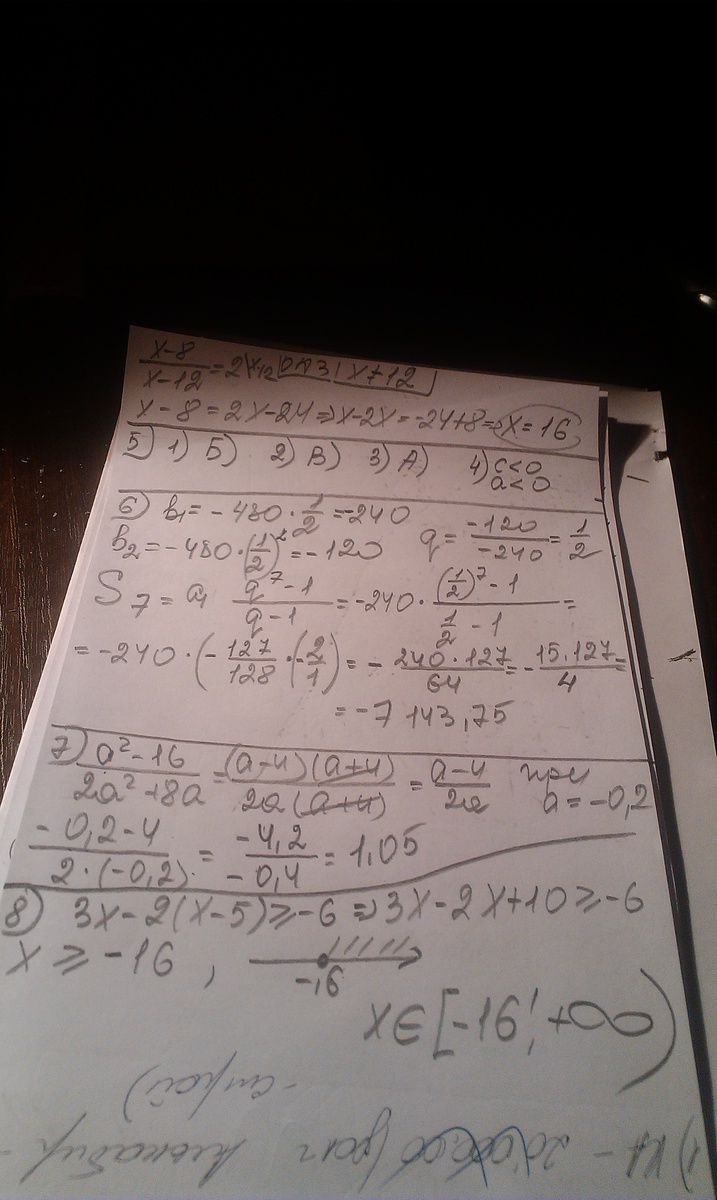 x-8/x-12 = 2 | x-12 x≠12
x-8=2x-24=>x-2x=-24+8=>x=16
5) 1) Б) 2) В) 3) А) 4) c<0
a<0
6) b₁=-480·1/2=-240
b₂=-480·(1/2)²=-120 q=-120/-240=1/2
S₇=a₁ q⁷-1/q-1=-240·(1/2)⁷-1/1/2-1=
=-240·(-127/128·(-2/1)=-240·127/64=-15·127/4=
=-7 143,75
7) a²-16/2a²+8a=(a-4)(a+4)/2a(a+4)=a-4/2a при
a=-0,2
-0,2-4/2·(-0,2)=-4,2/-0,4=1,05
8) 3x-2(x-5)≥-6=>3x-2x+10≥-6
x≥-16,
-16
x∈[-16;+∞)